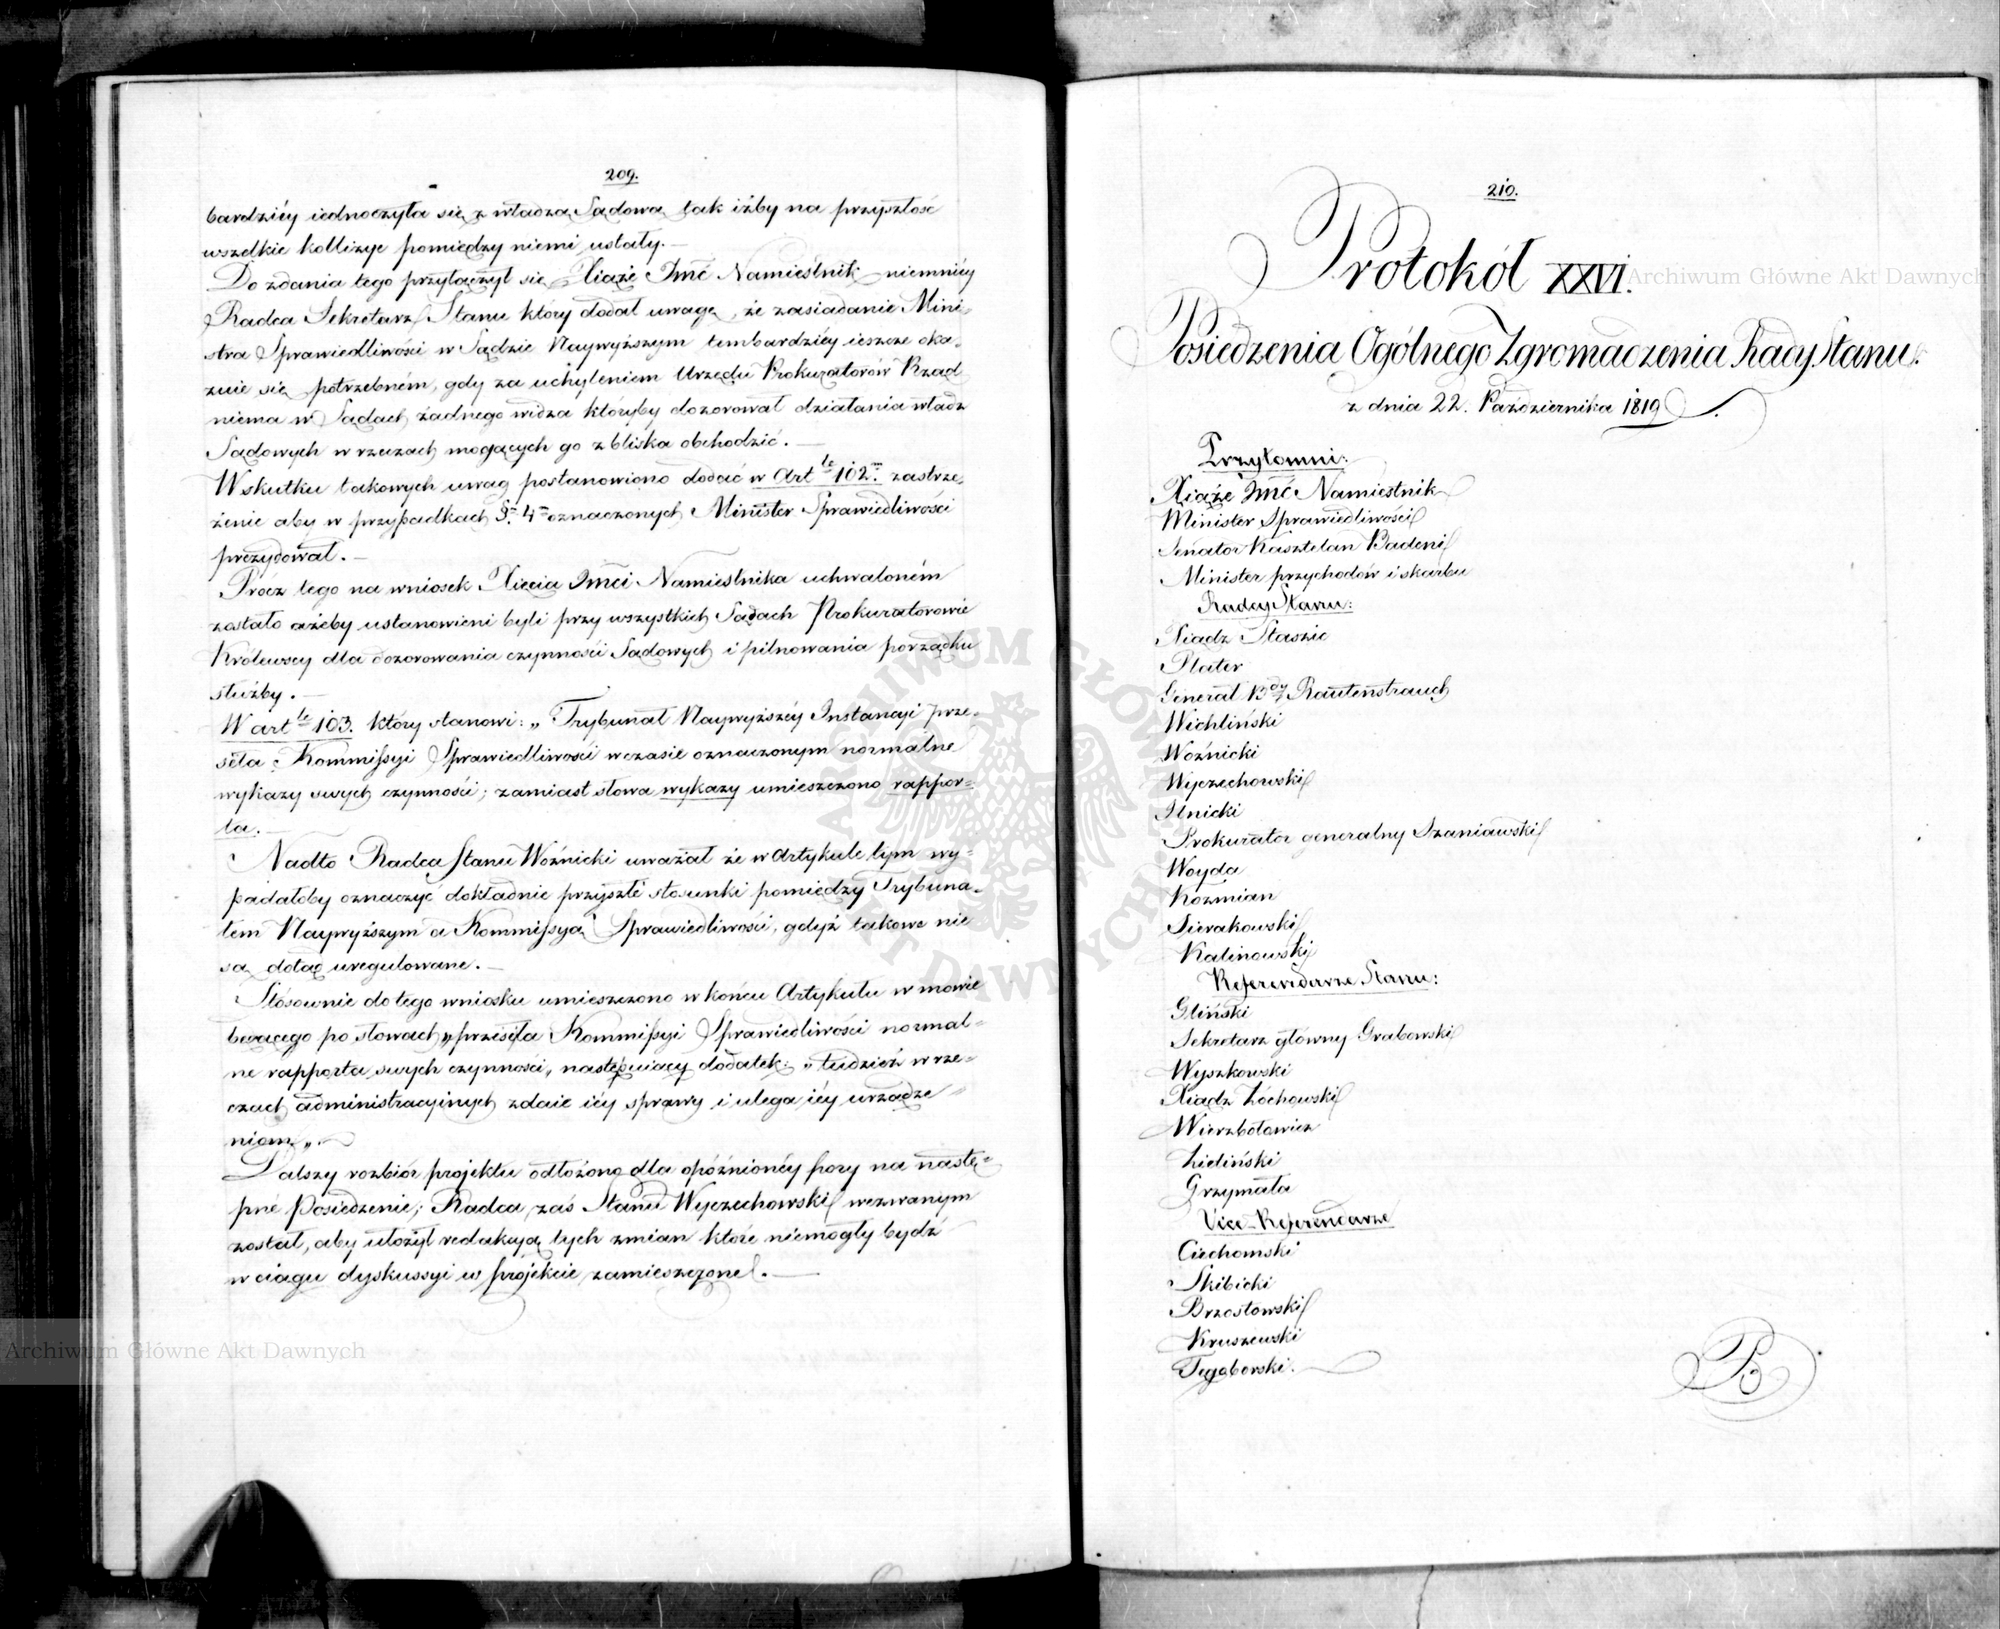 209.
bardziéy iednoczyła się z władzą Sądową tak iżby na przyszłość
wszelkie kollizye pomiędzy niemi ustały.—
Do zdania tego przyłączył się Xiąże Jmć Namiestnik niemniéy
Radca Sekretarz Stanu który dodał uwagę, że zasiadanie Mini-
stra Sprawiedliwości w Sądzie Naywyższym tembardziéy ieszcze oka-
zuie się potrzebném, gdy za uchyleniem Urzędu Prokuratorów Rząd
niema w Sądach żadnego widza któryby dozorował działania władz
Sądowych w rzeczach mogących go z bliska obchodzić.—
W skutku takowych uwag postanowiono dodać w Art le 102m. zastrze-
żenie aby w przypadkach §m. 4m oznaczonych Minister Sprawiedliwości
prezydował.—
Prócz tego na wniosek Xięcia Jmci Namiestnika uchwaloném
zostało ażeby ustanowieni byli przy wszystkich Sądach Prokuratorowie
Królewscy dla dozorowania czynności Sądowych i pilnowania porządku
służby.—
W art le 103. który stanowi: „Trybunał Naywyższéy Instancyi prze-
seła Kommissyi Sprawiedliwości w czasie oznaczonym normalne
wykazy swych czynności; zamiast słowa wykazy umieszczono rappor-
ta.—
Nadto Radca Stanu Woźnicki uważał że w Artykule tym wy-
padałoby oznaczyć dokładnie przyszłe stosunki pomiędzy Tryбuna-
łem Naywyższym a Kommissyą Sprawiedliwości, gdyż takowe nie
są dotąd uregulowane.—
Stósownie do tego wniosku umieszczono w końcu Artykułu w mowie
będącego po słowach „przeséła Kommissyi Sprawiedliwości normal-
ne rapporta swych czynności, następuiący dodatek: „tudzież w rze-
czach administracyinych zdaie iéy sprawy i ulega iéy urządze-
niom„.—
Dalszy rozbiór projektu odłożono dla opóźnionéy pory na nastę-
pne Posiedzenie; Radca zaś Stanu Wyczechowski wezwanym
został, aby ułożył redakcyą tych zmian które niemogły bydź
w ciągu dyskussyi w projekcie zamieszczone.—
210.
Protokół XXVI.
Posiedzenia Ogólnego Zgromadzenia Rady Stanu.
z dnia 22. Października 1819.
Przytomni:
Xiąże Jmć Namiestnik
Minister Sprawiedliwości
Senator Kasztelan Badeni
Minister przychodów i skarbu
Radcy Stanu:
Xiądz Staszic
Plater
Generał Bdy Rautenstrauch
Wichliński
Woźnicki
Wyczechowski
Ilnicki
Prokurator generalny Szaniawski
Woyda
Koźmian
Sierakowski
Kalinowski
Referendarze Stanu:
Gliński
Sekretarz główny Grabowski
Wyszkowski
Xiądz Łochowski
Wierzbołowicz
Zieliński
Grzymała
Vice-Referendarze
Ciechomski
Skibicki
Brzostowski
Kruszewski
Tęgoborski.
Archiwum Główne Akt Dawnych
Archiwum Główne Akt Dawnych
ARCHIWUM GŁÓWNE AKT DAWNYCH